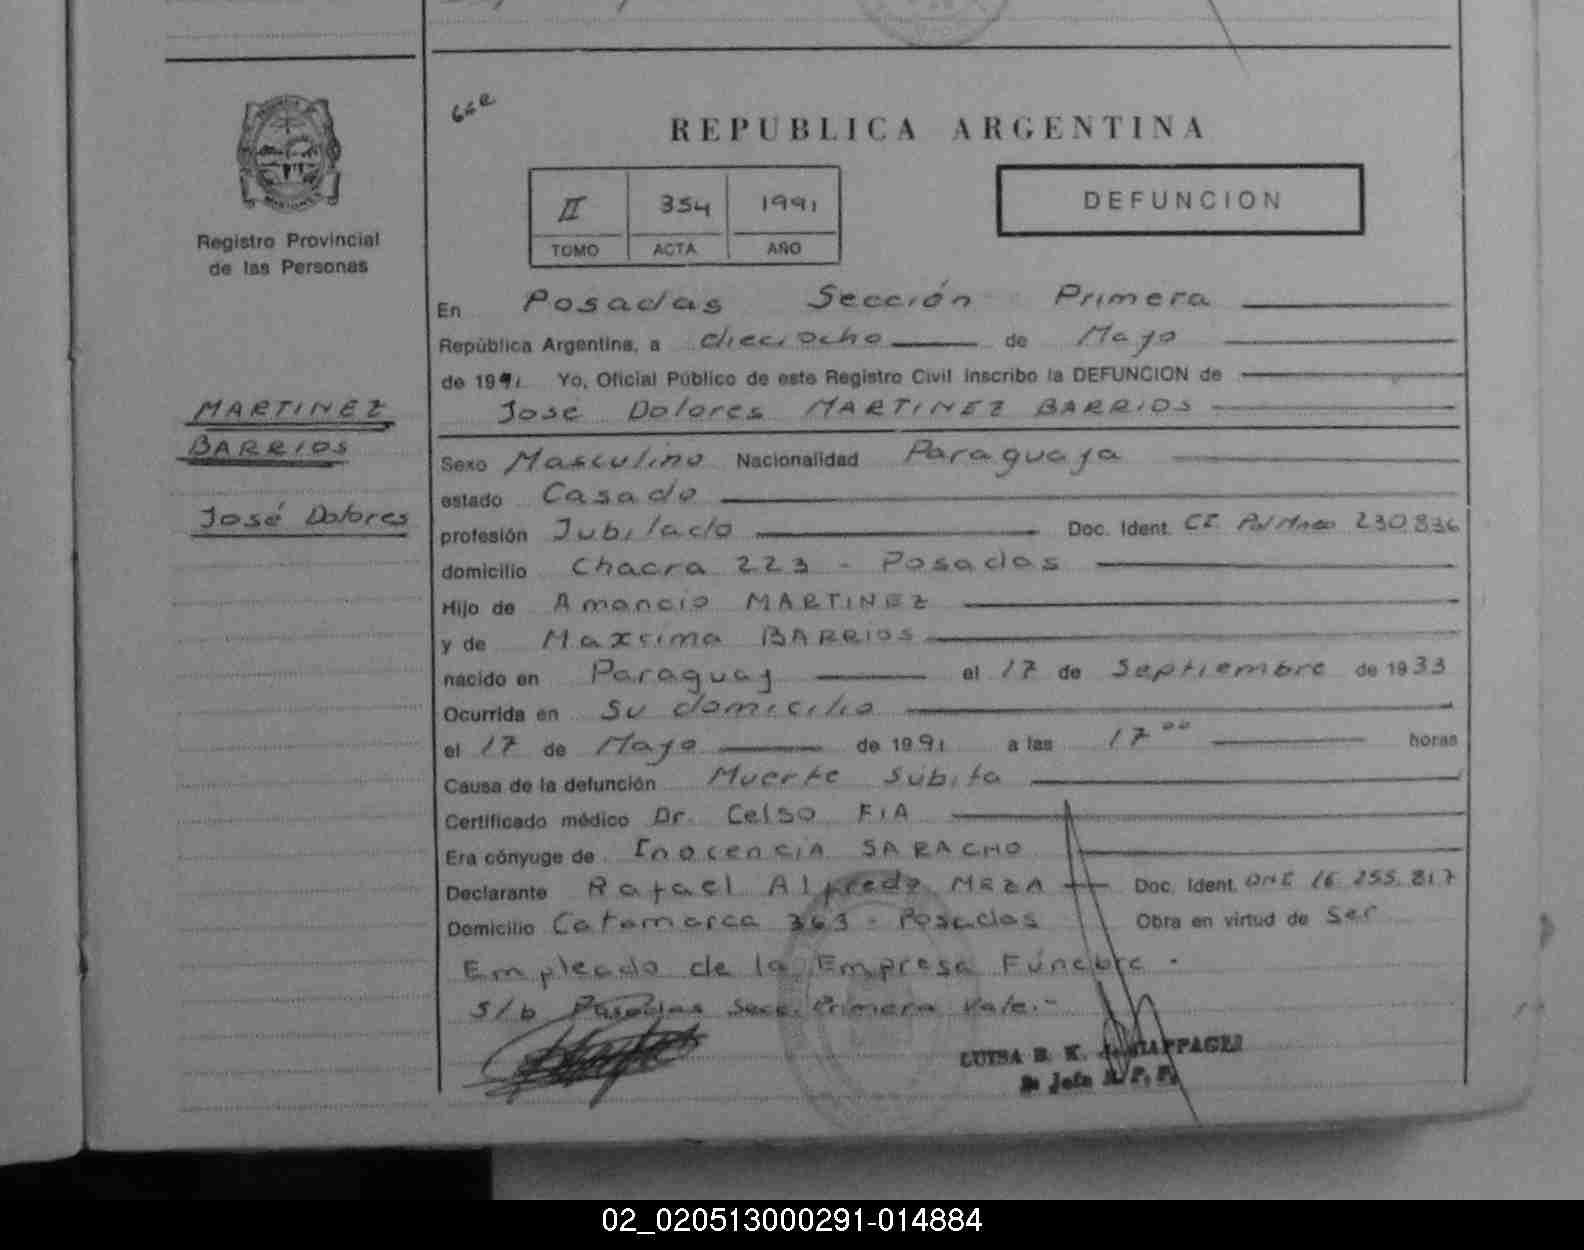 REPUBLICA ARGENTINA
II 354 1991
TOMO ACTA AÑO
DEFUNCION
Registro Provincial
de las Personas
MARTINEZ
BARRIOS
José Dolores
En Posadas Sección Primera
República Argentina, a dieciocho de Mayo
de 1991 Yo, Oficial Público de este Registro Civil inscribo la DEFUNCION de
José Dolores MARTINEZ BARRIOS
Sexo Masculino Nacionalidad Paraguaya
estado Casado
profesión Jubilado Doc. Ident. CI 230.836
domicilio Chacra 223 - Posadas
Hijo de Amancio MARTINEZ
y de Maxsima BARRIOS
nacido en Paraguay el 17 de Septiembre de 1933
Ocurrida en Su domicilio
el 17 de Mayo de 1991 a las 17 00 horas
Causa de la defunción Muerte Súbita
Certificado médico Dr. Celso FIA
Era cónyuge de Inocencia SARACHO
Declarante Rafael Alfredo MEZA Doc. Ident. DNI 16.255.817
Domicilio Catamarca 363 - Posadas Obra en virtud de Ser
Empleado de la Empresa Fúnebre.
S/b Posadas Secc. Primera Vale.-
LUISA B. K. de
02_020513000291-014884